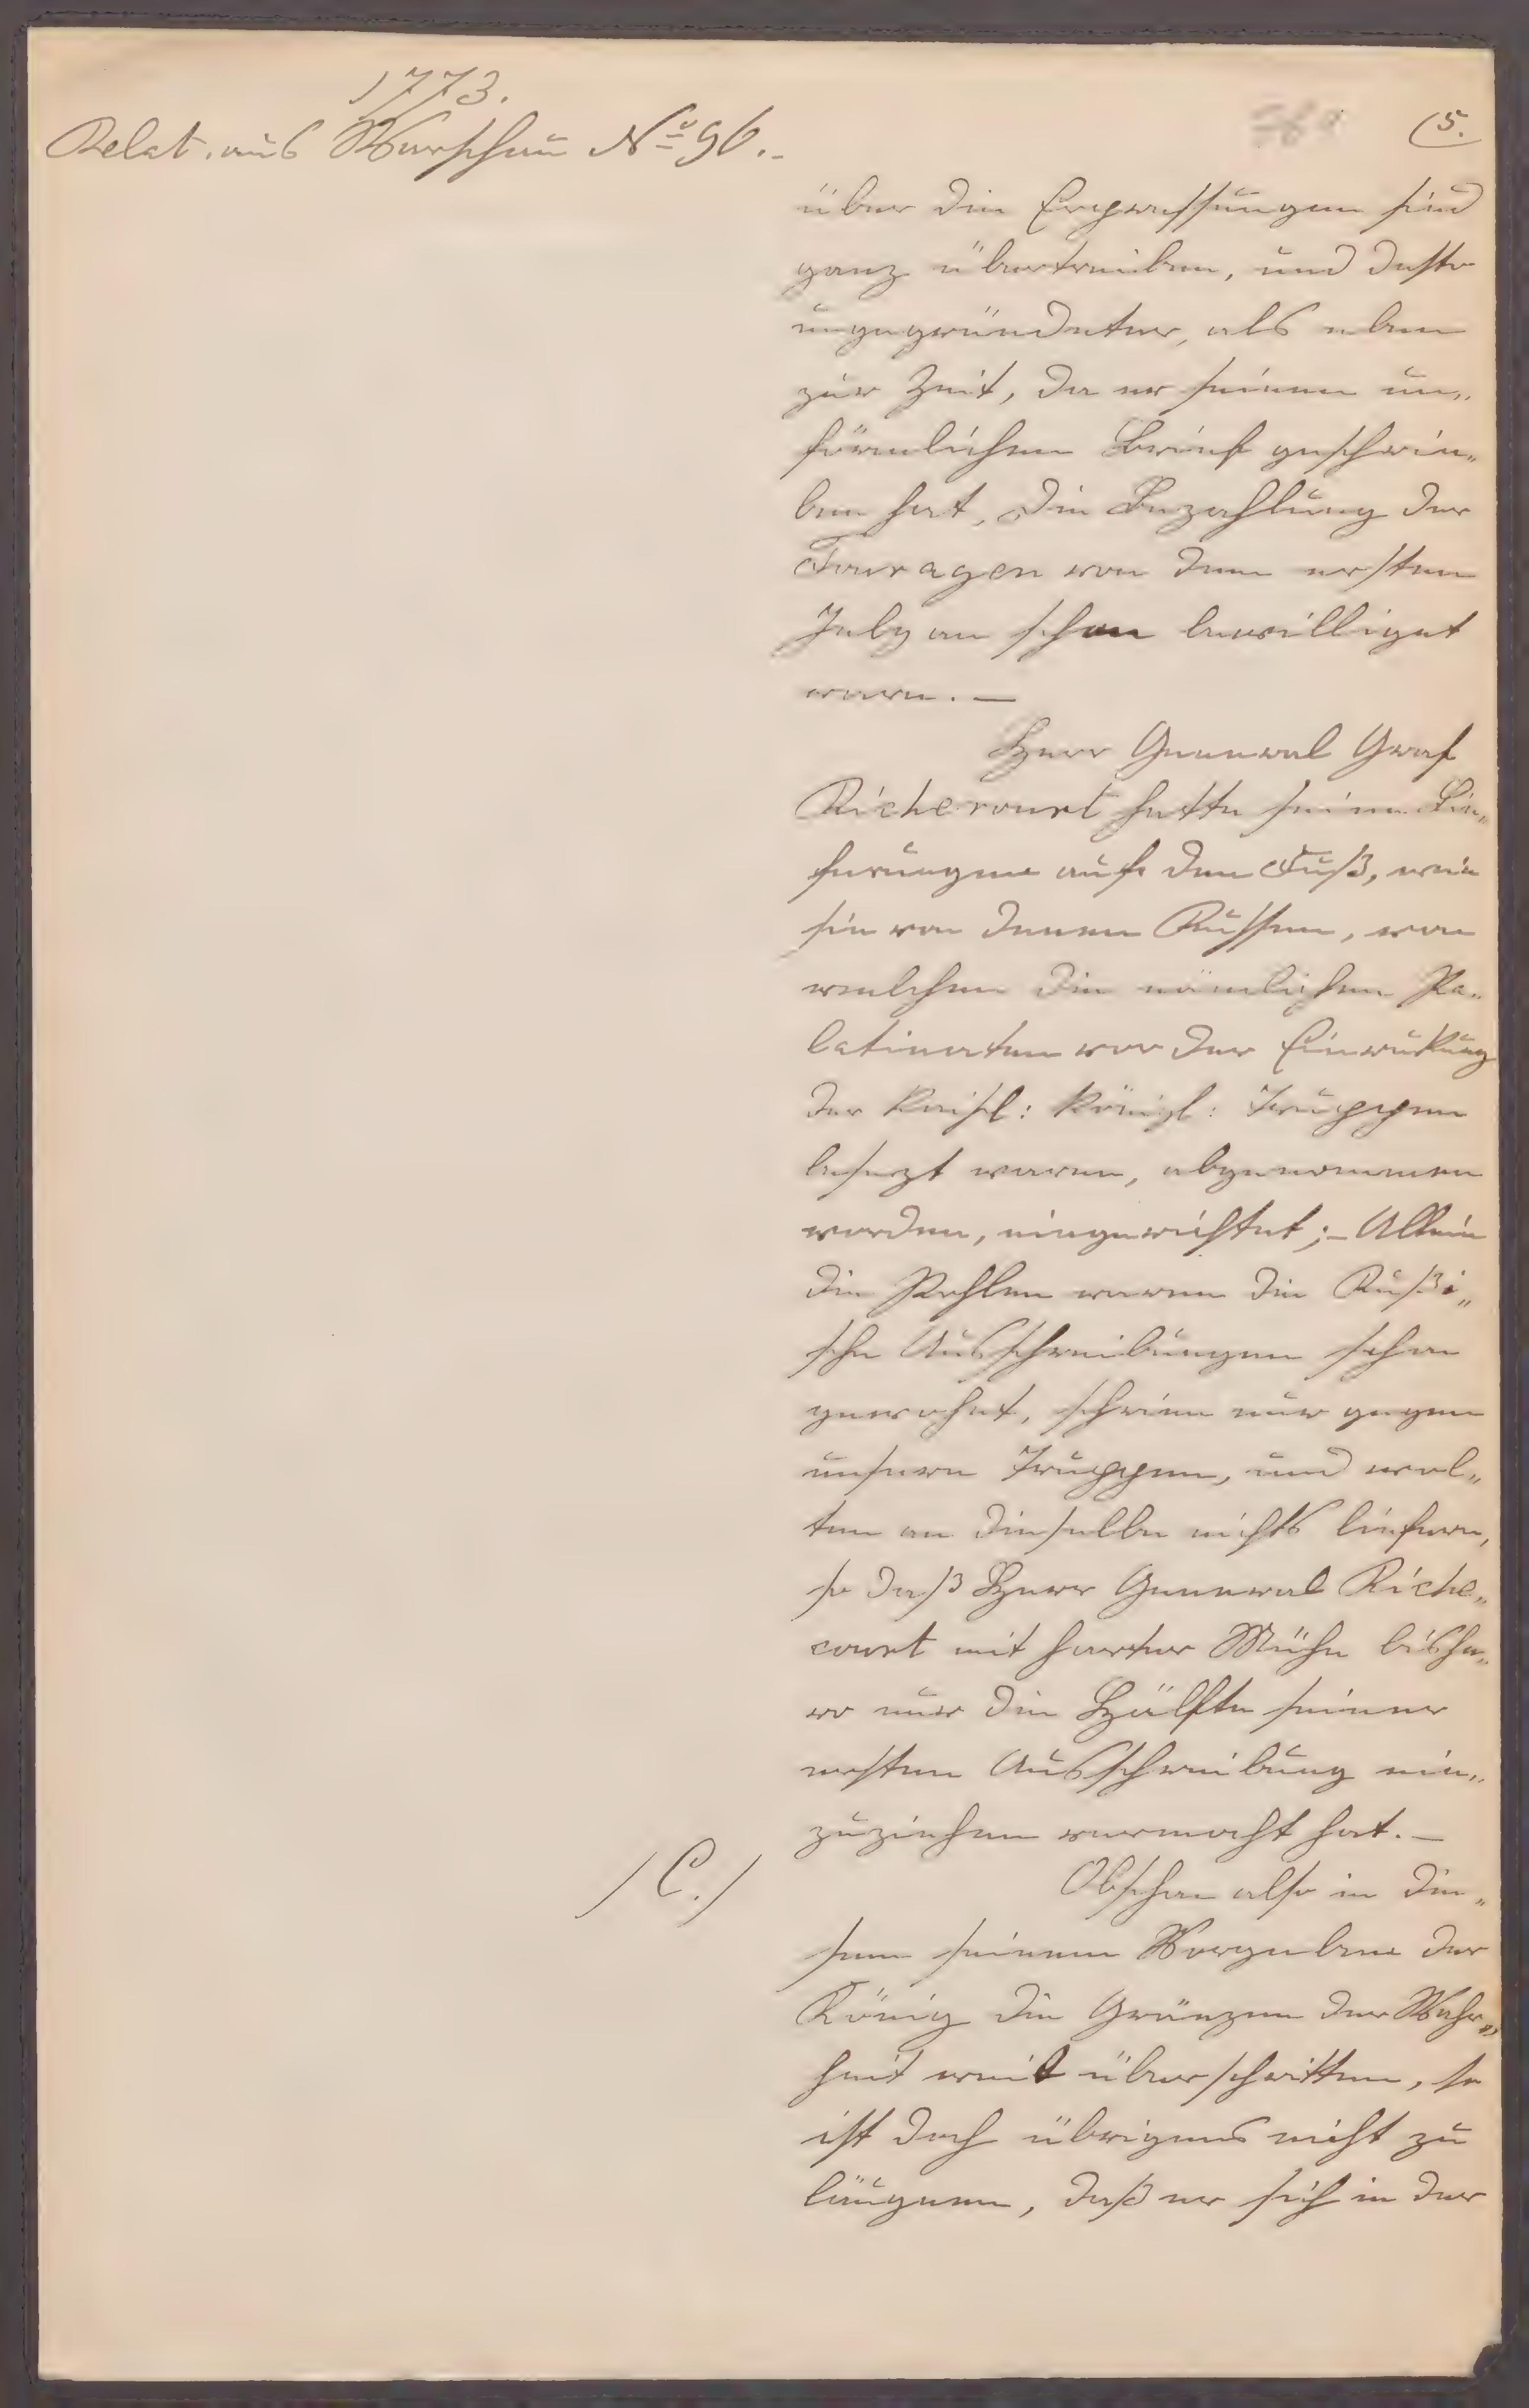 1773.
Relat. aus Warschau No 96..
(5.
über die Erpressungen sind
ganz übertrieben, und desto
ungegründeter, als eben
zur Zeit, da er seinen un„
förmlichen Brief geschrie„
ben hat, die Bezahlung der
Fouragen von dem ersten
July an schon bewilliget
ware. —
Herr General Graf
Richecourt hatte seine Lie„
ferungen auf den Fuß, wie
sie von denen Russen, von
welchen die nämlichen Pa„
latinaten vor der Einrükung
der Kaisl: Königl: Truppen
besezt waren, abgenommen
worden, eingerichtet; – Allein
die Pohlen waren die Rußi„
sche Ausschreibungen schon
gewohnt, schrien nur gegen
unsere Truppen, und wol„
ten an dieselbe nichts liefern,
so daß Herr General Riche„
court mit harter Mühe bishe„
ro nur die Hälfte seiner
ersten Ausschreibung ein„
zuziehen vermocht hat. —
/ C. /
Obschon also in die„
sem seinem Vorgeben der
König die Gränzen der Wahr„
heit weit überschritten, so
ist doch übrigens nicht zu
läugnen, daß er sich in der